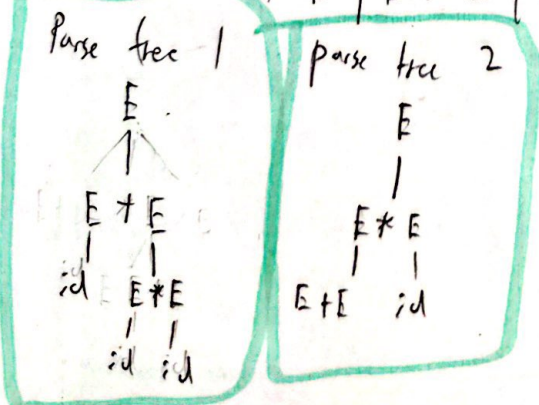 Parse tree 1
E
E + E
id E * E
id id
parse tree 2
E
E * E
E + E id